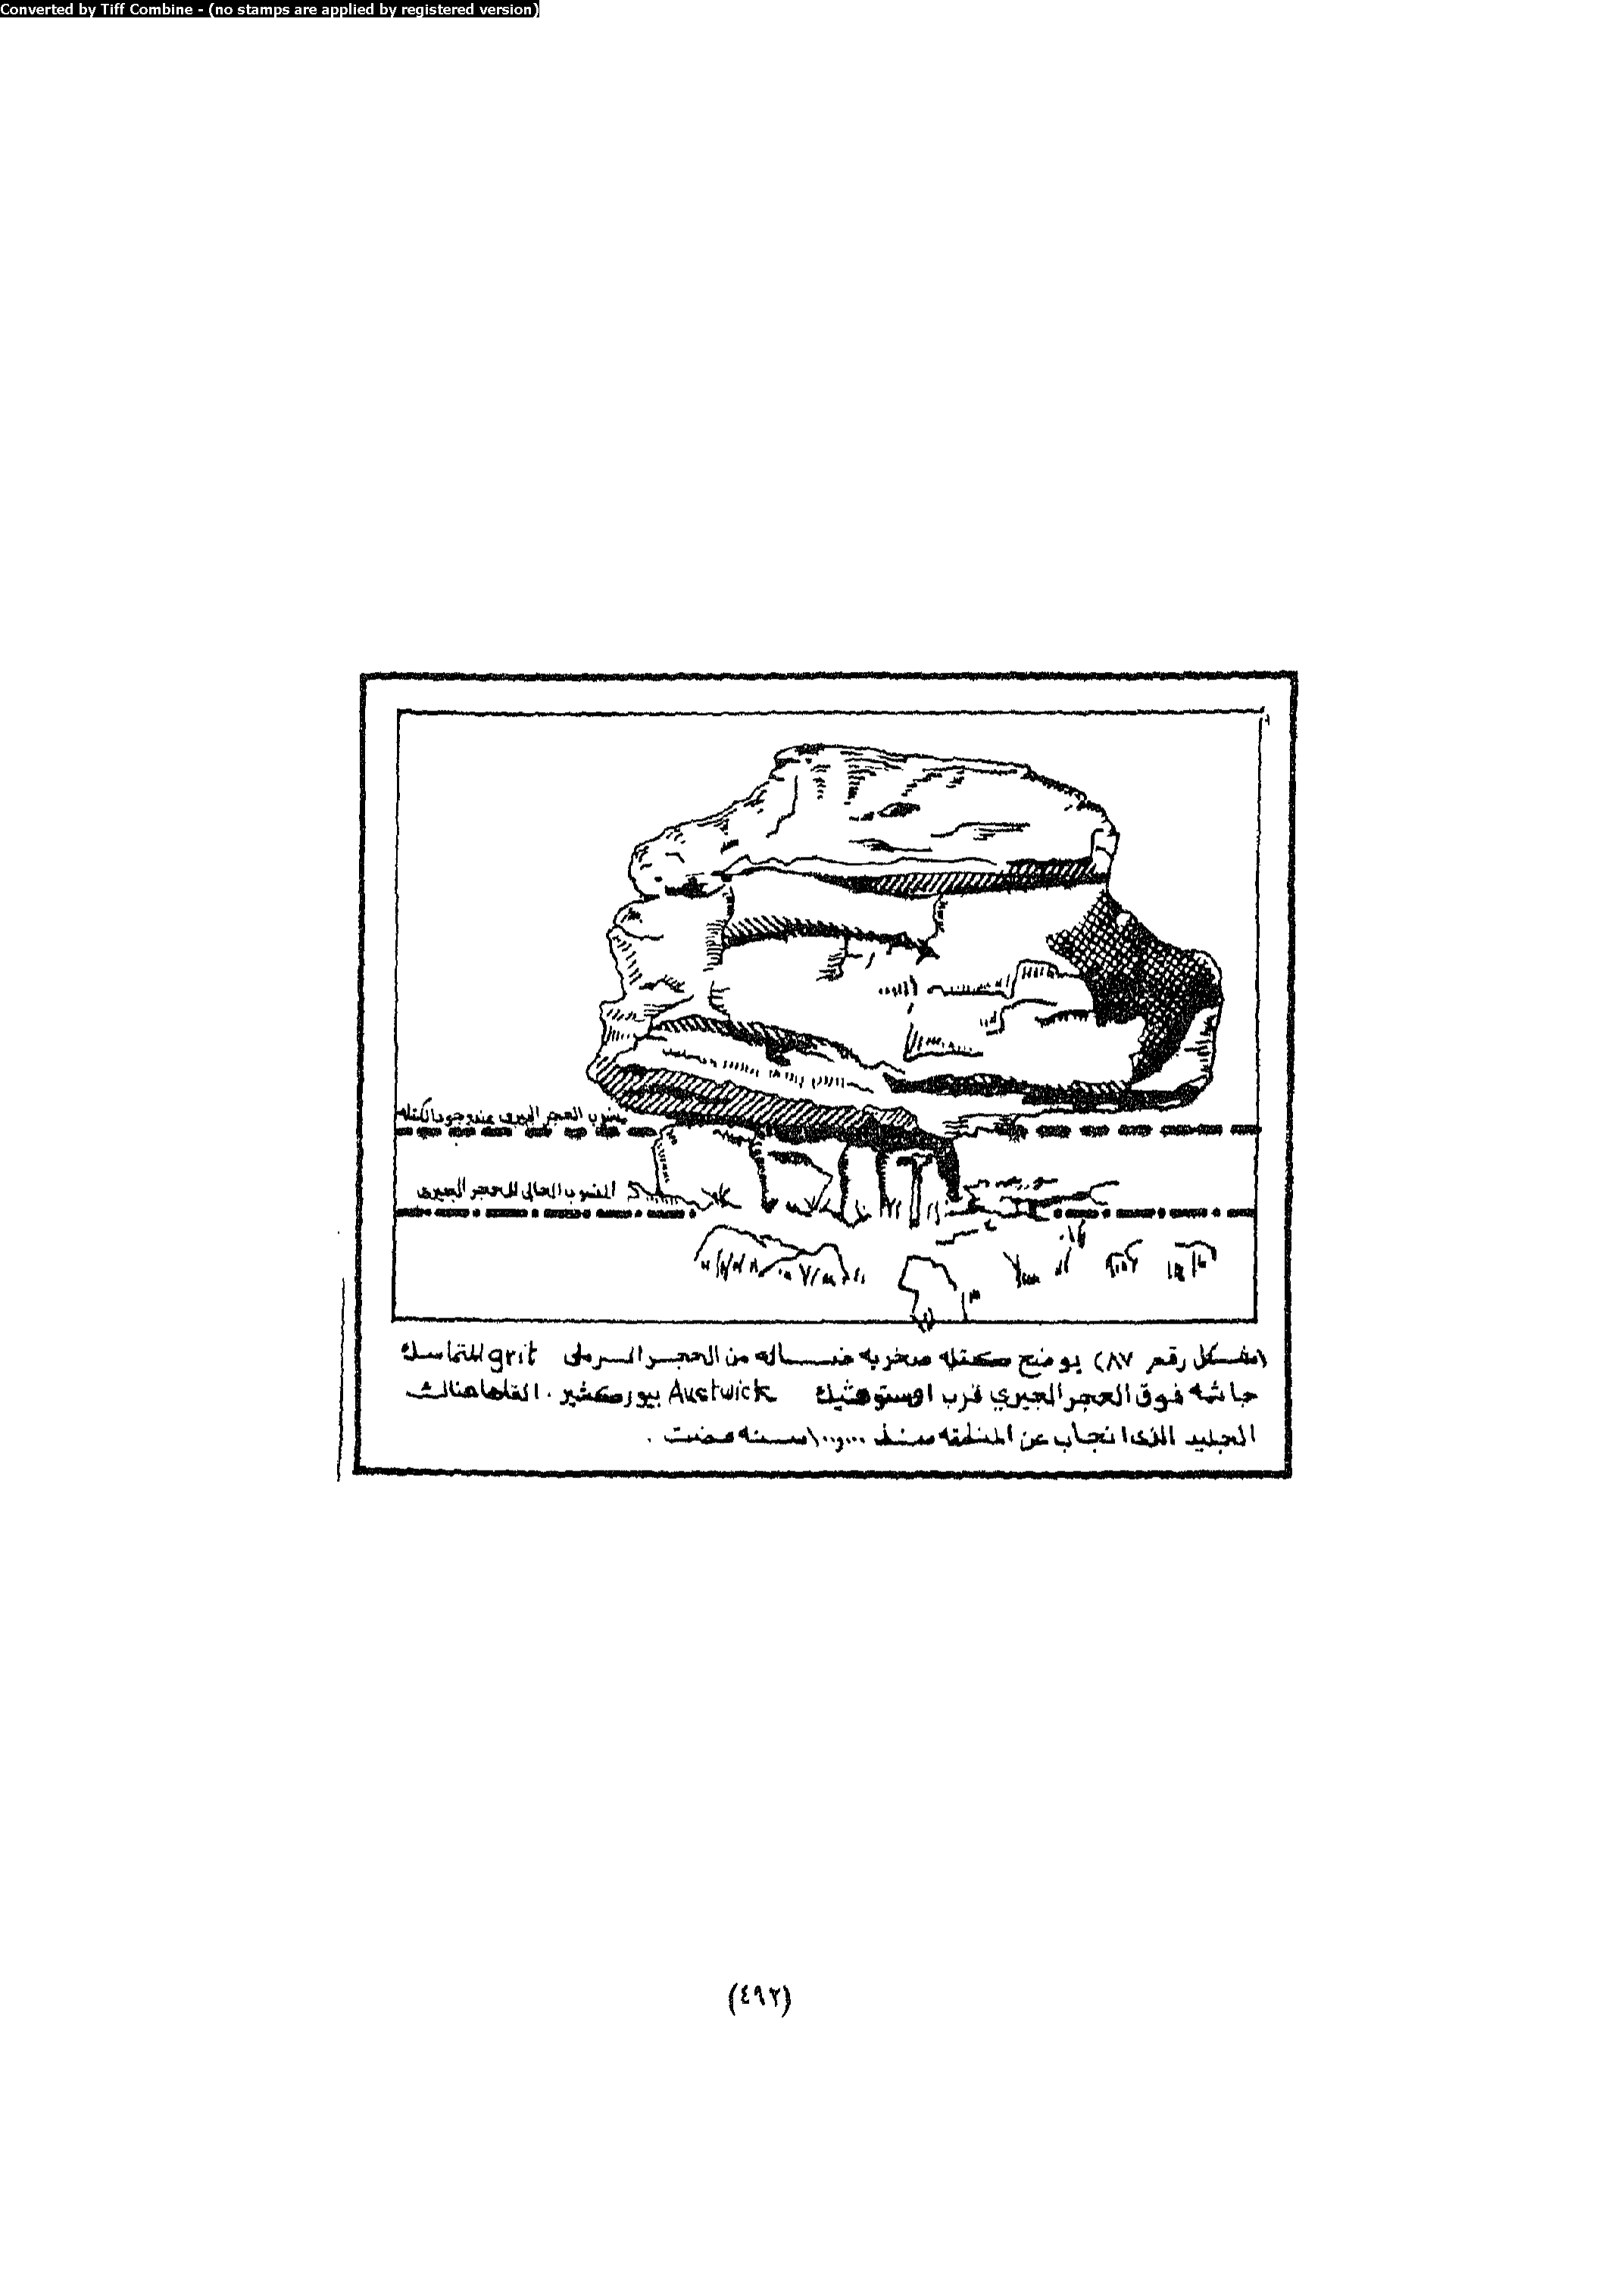 Converted by Tiff Combine - (no stamps are applied by registered version)
منسوب الحجر الجيرى عند وجود الكتله
المنسوب الحالى للحجر الجيرى
(شكل رقم ٨٧) يوضح كتله صخريه ضاله من الحجر الرملى grit المتماسك
جاثمه فوق الحجر الجيري قرب اوستوهثيك Austwick بيوركشير . القاها هنالك
الجليد الذى انجاب عن المنطقه منذ ١٠,٠٠٠ سنه مضت .
(٤٩٢)